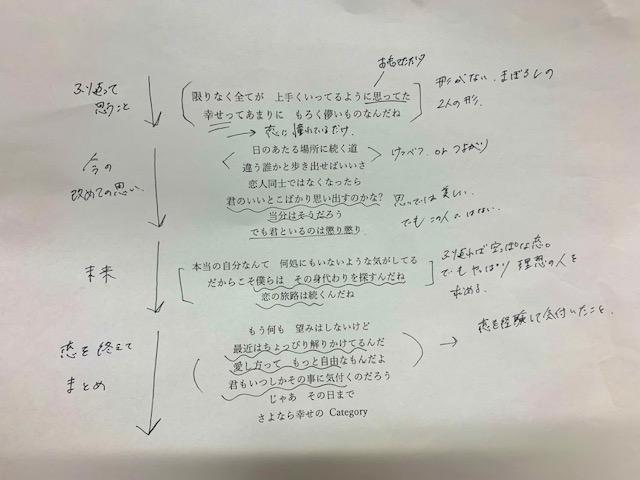 ふり返って
思うこと
限りなく全てが　上手くいってるように思ってた
幸せってあまりに　もろく儚いものなんだね
形がない、まぼろしの
2人の形.
恋に憧れているだけ.
今の
改めての思い.
日のあたる場所に続く道
違う誰かと歩き出せばいいさ
けつべつ or つよがり
恋人同士ではなくなったら
君のいいとこばかり思い出すのかな?
当分はそうだろう
でも君といるのは懲り懲り
美しい.
でもこの人ではない.
未来
本当の自分なんて　何処にもいないような気がしてる
だからこそ僕らは　その身代わりを探すんだね
恋の旅路は続くんだね
ふり返れば空っぽな恋。
でもやっぱり 理想の人を
求める.
恋を終えて
まとめ
もう何も　望みはしないけど
最近はちょっぴり解りかけてるんだ
愛し方って　もっと自由なもんだよ
君もいつしかその事に気付くのだろう
じゃあ　その日まで
さよなら幸せの Category
恋を経験して気付いたこと.